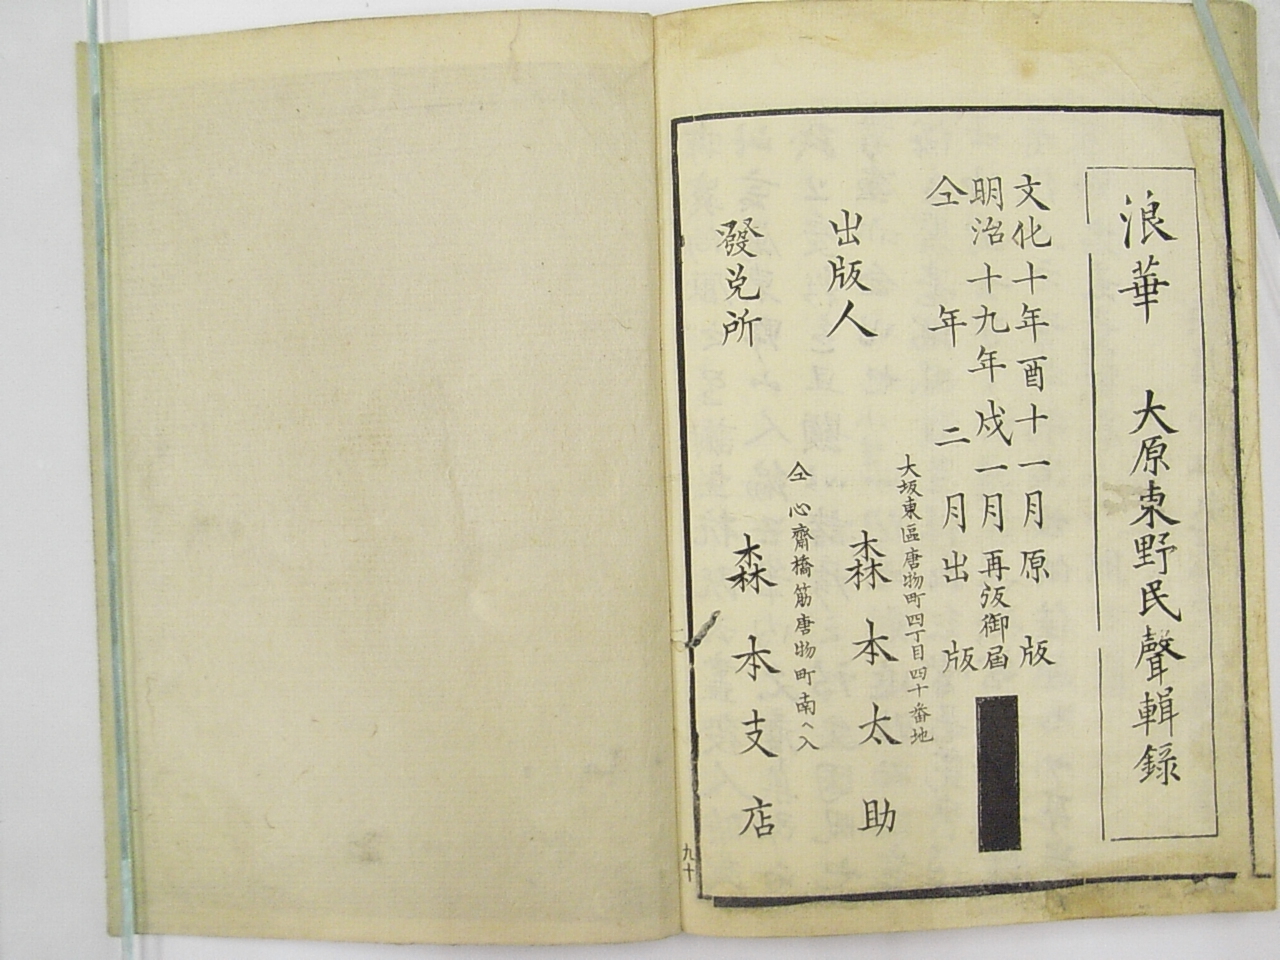 浪華 大原東野民聲輯錄
文化十年酉十一月原版
明治十九年戌一月再版御届
仝年二月出版
大坂東區唐物町四丁目四十番地
出版人 森本太助
仝 心齋橋筋唐物町南ヘ入
發兌所 森本支店
九十